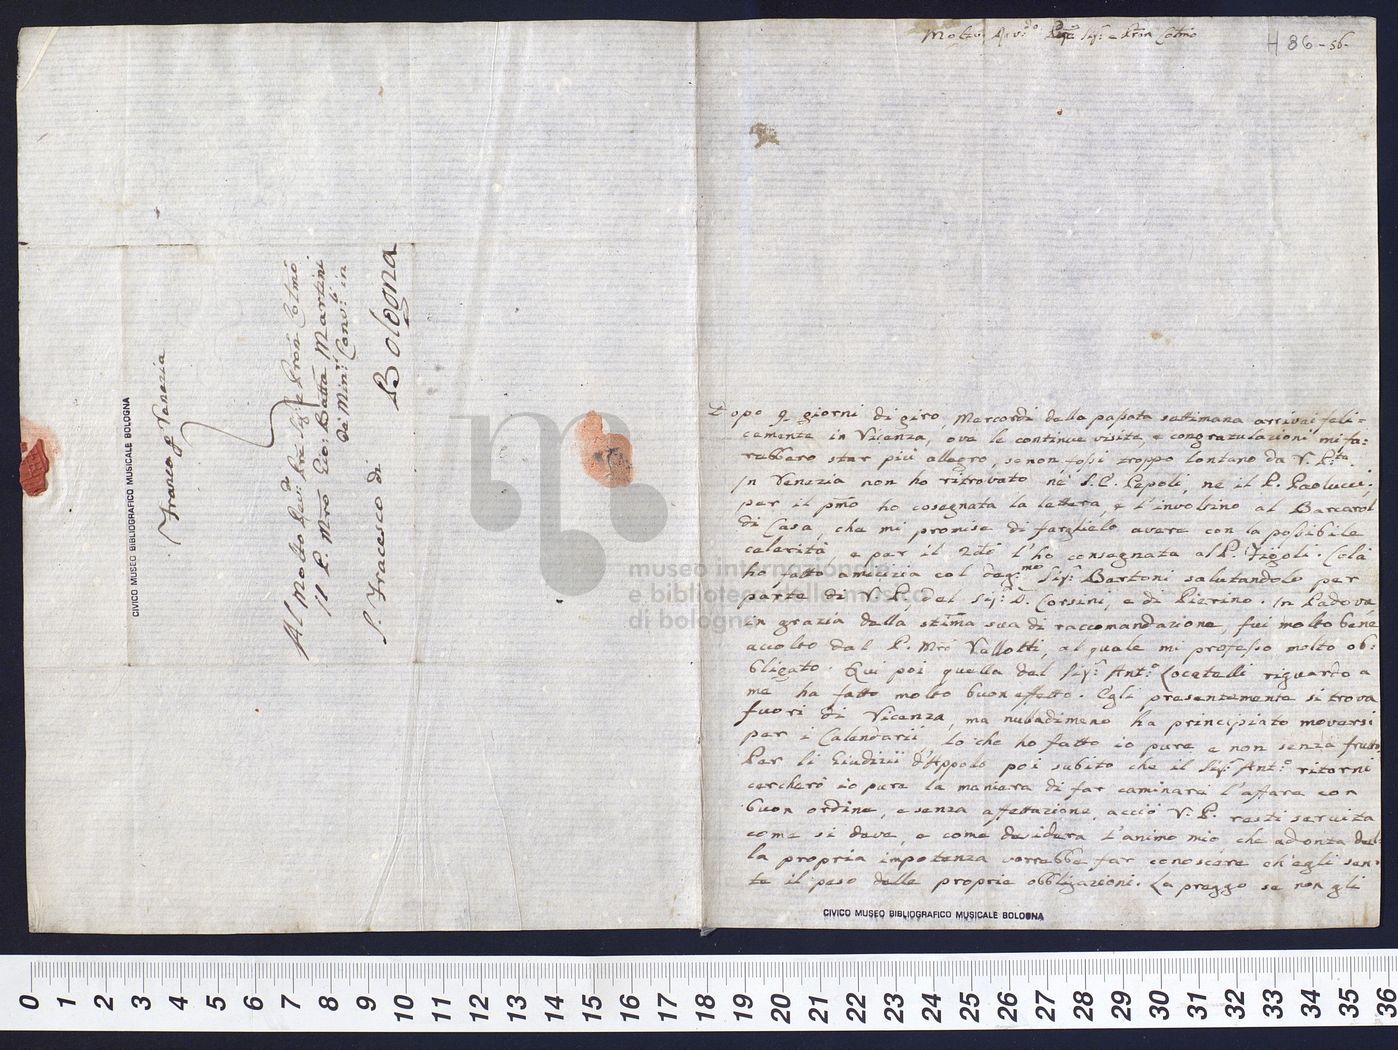 Franca p Venezia
Al Molto Rev:do Pre Sig:r e Pron Colmo
Il P. Mro Gio: Batta Martini
De Min:ri Conv:li in
S. Fracesco di
Bologna
CIVICO MUSEO BIBLIOGRAFICO MUSICALE BOLOGNA
Molto Rev:do Sig:r e Pron Colmo
H 86 - 56-
Dopo 9 giorni di giro, Mercordì della passata settimana arrivai feli=
cemente in Vicenza, ove le continue visite, e congratulazioni mi fa=
rebbero star più allegro, se non fossi troppo lontano da V. P.tà
In Venezia non ho ritrovato nè S. E. Pepoli, nè il P. Paolucci;
per il pmo ho cosegnata la lettera, e l'involtino al Barcarol
di Casa, che mi promise di farglielo avere con la possibile
celerità, e per il 2do l'ho consegnata al P. Figoli. Colà
ho fatto amicizia col deg:mo Sig:r Bertoni salutandolo per
parte di V. P., del Sig:r D. Corsini, e di Pierino. In Padova
in grazia della stima sua di raccomandazione, fui molto bene
accolto dal P. Mro Vallotti, al quale mi professo molto ob=
bligato. Qui poi quella del Sig:r Ant:o Locatelli riguardo a
me ha fatto molto buon effetto. Egli presentemente si trova
fuori di Vicenza, ma nulladimeno ha principiato moversi
per i Calendarii, lo che ho fatto io pure e non senza frutto.
Per li Giudizii d'Appolo poi subito che il Sig:r Ant:o ritorni
cercherò io pure la maniera di far caminare l'affare con
buon ordine, e senza affettazione, acciò V. P. resti servita
come si deve, e come desidera l'animo mio, che ad onta del=
la propria impotenza vorrebbe far conoscere ch'egli sen=
te il peso delle proprie obbligazioni. La preggo se non gli
CIVICO MUSEO BIBLIOGRAFICO MUSICALE BOLOGNA
museo internazionale
e biblioteca della musica
di bologna
0 1 2 3 4 5 6 7 8 9 10 11 12 13 14 15 16 17 18 19 20 21 22 23 24 25 26 27 28 29 30 31 32 33 34 35 36